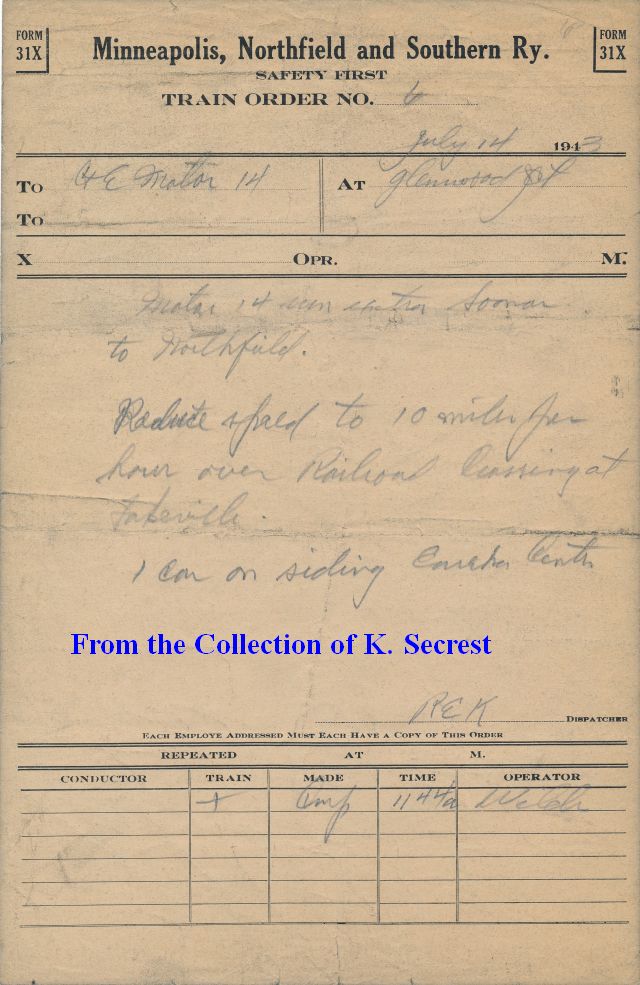 FORM 31X
FORM 31X
Minneapolis, Northfield and Southern Ry.
SAFETY FIRST
TRAIN ORDER NO. 6
July 14 1943
TO C&E Motor 14 AT Glenwood Jct
TO
X OPR. M.
Motor 14 run extra Soonar
to Northfield.
Reduce speed to 10 miles per
hour over Railroad Crossing at
Lakeville.
1 car on siding Eureka Center
From the Collection of K. Secrest
REK DISPATCHER
EACH EMPLOYE ADDRESSED MUST EACH HAVE A COPY OF THIS ORDER
REPEATED AT M.
CONDUCTOR TRAIN MADE TIME OPERATOR
+ Cmp 11 44a Welch